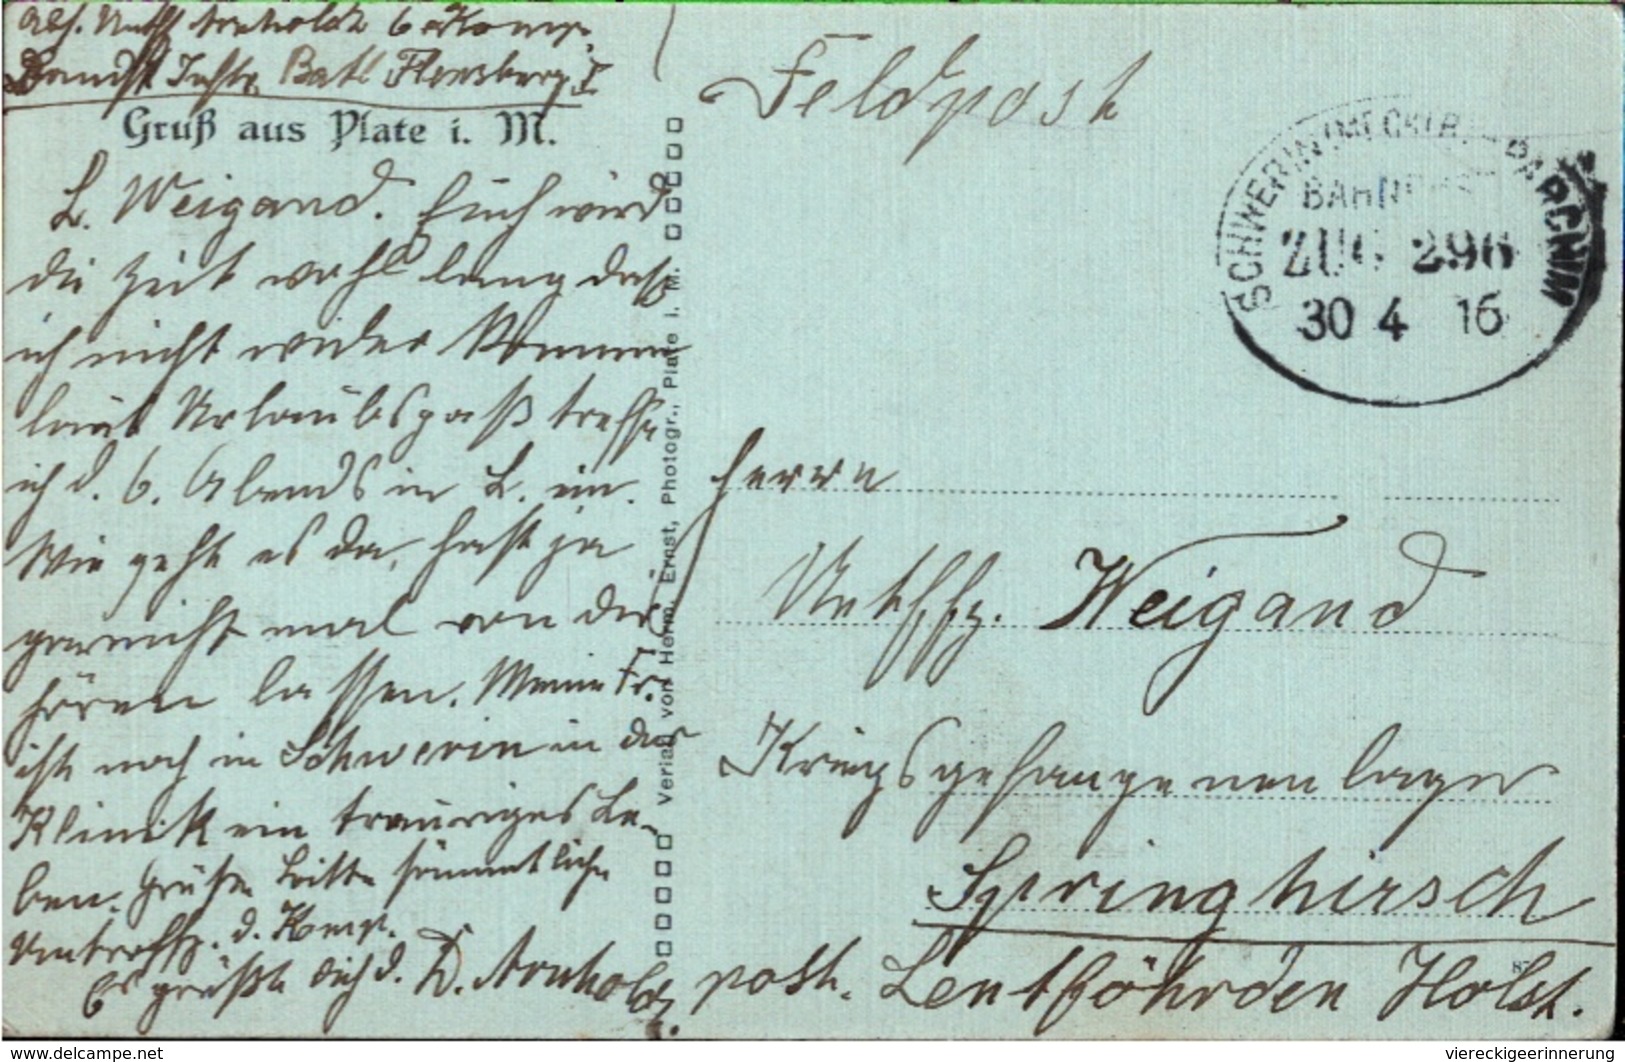 Abs. Untff. Arnholdt 6. Komp.
Landst. Inftr. Batl. Flensburg I
Gruß aus Plate i. M.
L. Weigand. Euch wird
die Zeit wohl lang daß
ich nicht wider komme
laut Urlaubspaß treffe
ich d. 6. Abends in L. ein.
Wie geht es da, hast ja
garnicht mal von dir
hören lassen. Meine Fr.
ist noch in Schwerin in der
Klinik ein trauriges Le-
ben. Grüße bitte sämmtliche
Unteroffz. d. Komp.
Es grüßt dich d. D. Arnholdt
Verlag von Herm. Ernst, Photogr., Plate i. M.
Feldpost
SCHWERIN (MECKLB.) - PARCHIM
BAHNPOST
ZUG 296
30 4 16
Herrn
Untffz. Weigand
Kriegsgefangenenlager
Springhirsch
post. Lentföhrden Holst.
87
viereckigeerinnerung
www.delcampe.net